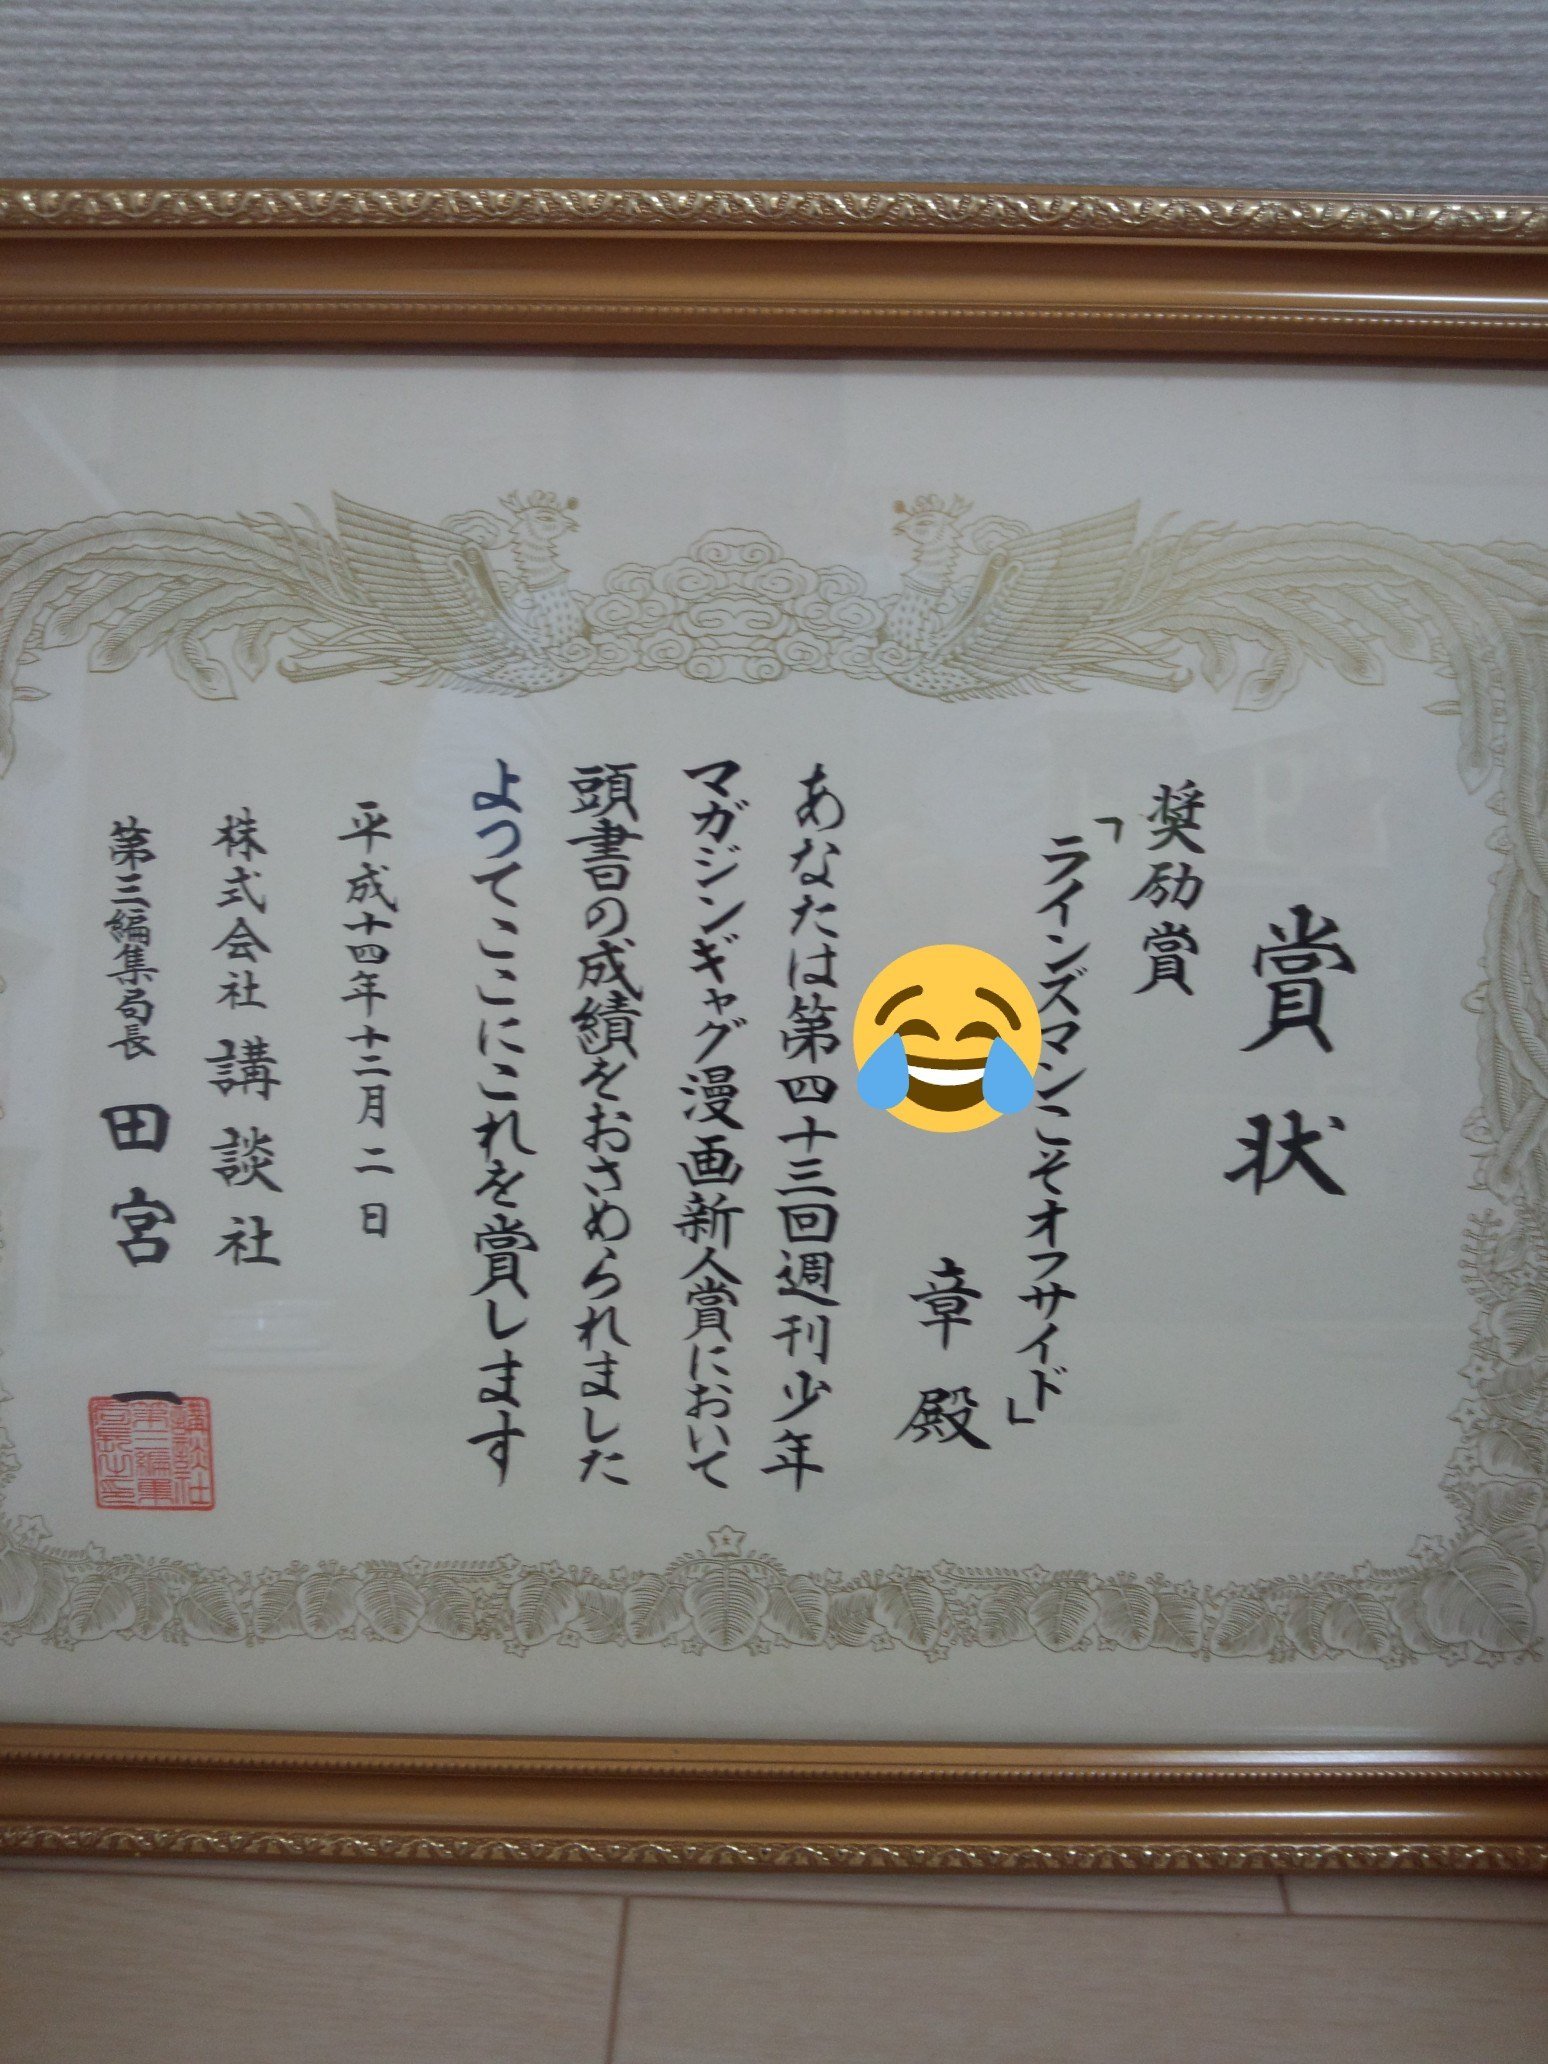 賞状
奨励賞
「ラインズマンこそオフサイド」
章殿
あなたは第四十三回週刊少年
マガジンギャグ漫画新人賞において
頭書の成績をおさめられました
よつてここにこれを賞します
平成十四年十二月二日
株式会社講談社
第三編集局長 田宮一